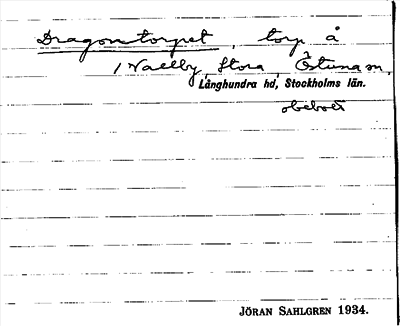 Dragontorpet, torp å
Vallby, Stora, Östuna sn,
Långhundra hd, Stockholms län.
obebott
JÖRAN SAHLGREN 1934.